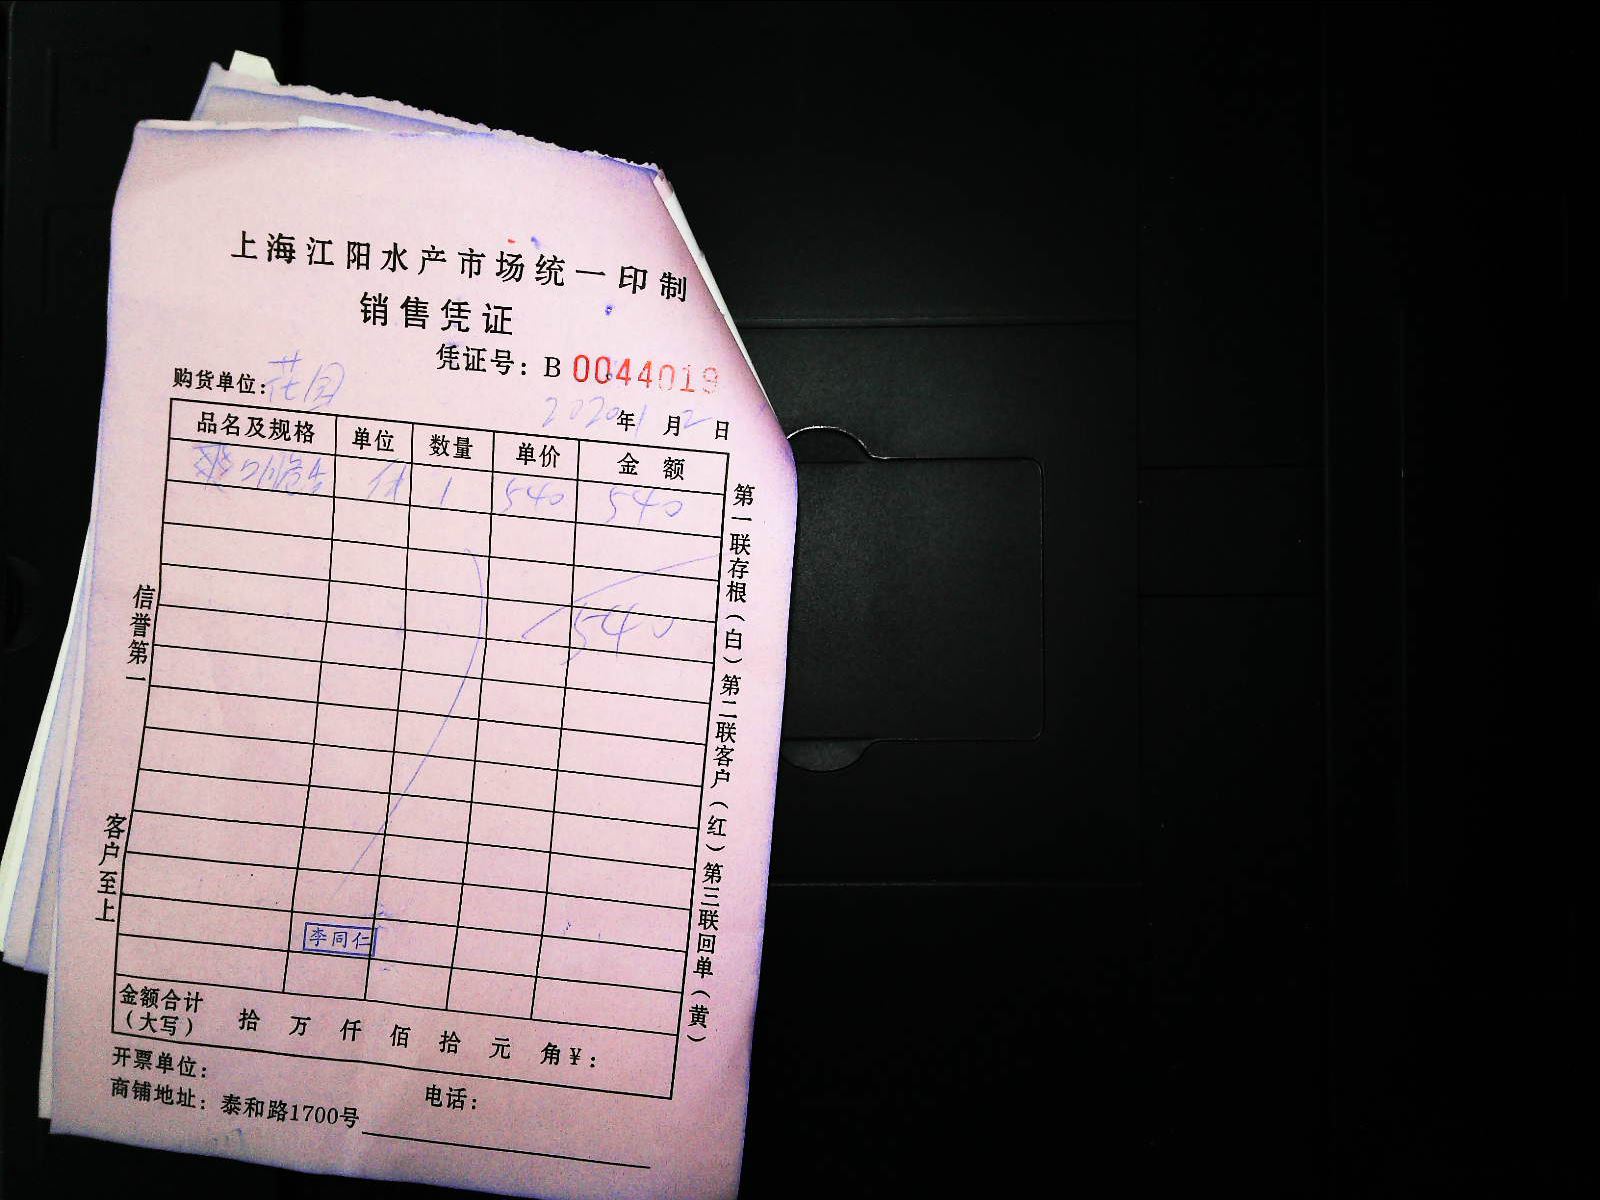 上海江阳水产市场统一印制
销售凭证
凭证号：B 0044019
购货单位：花园
2020年1月2日
品名及规格 单位 数量 单价 金额
1 540 540
540
信誉第一
客户至上
第一联存根（白）第二联客户（红）第三联回单（黄）
李同仁
金额合计（大写） 拾 万 仟 佰 拾 元 角 ¥：
开票单位：
电话：
商铺地址：泰和路1700号